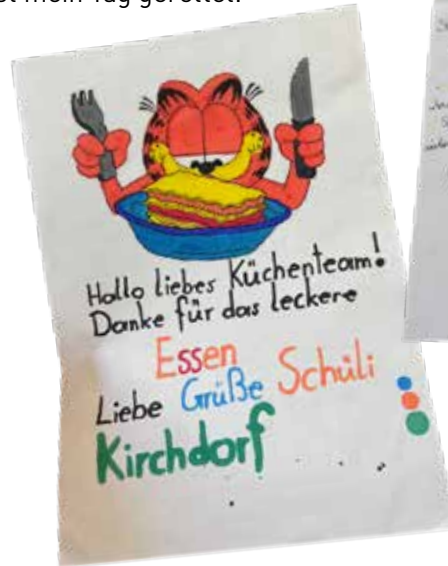 mein Tag gerettet.
Hallo liebes Küchenteam!
Danke für das leckere
Essen
Liebe Grüße Schüli
Kirchdorf